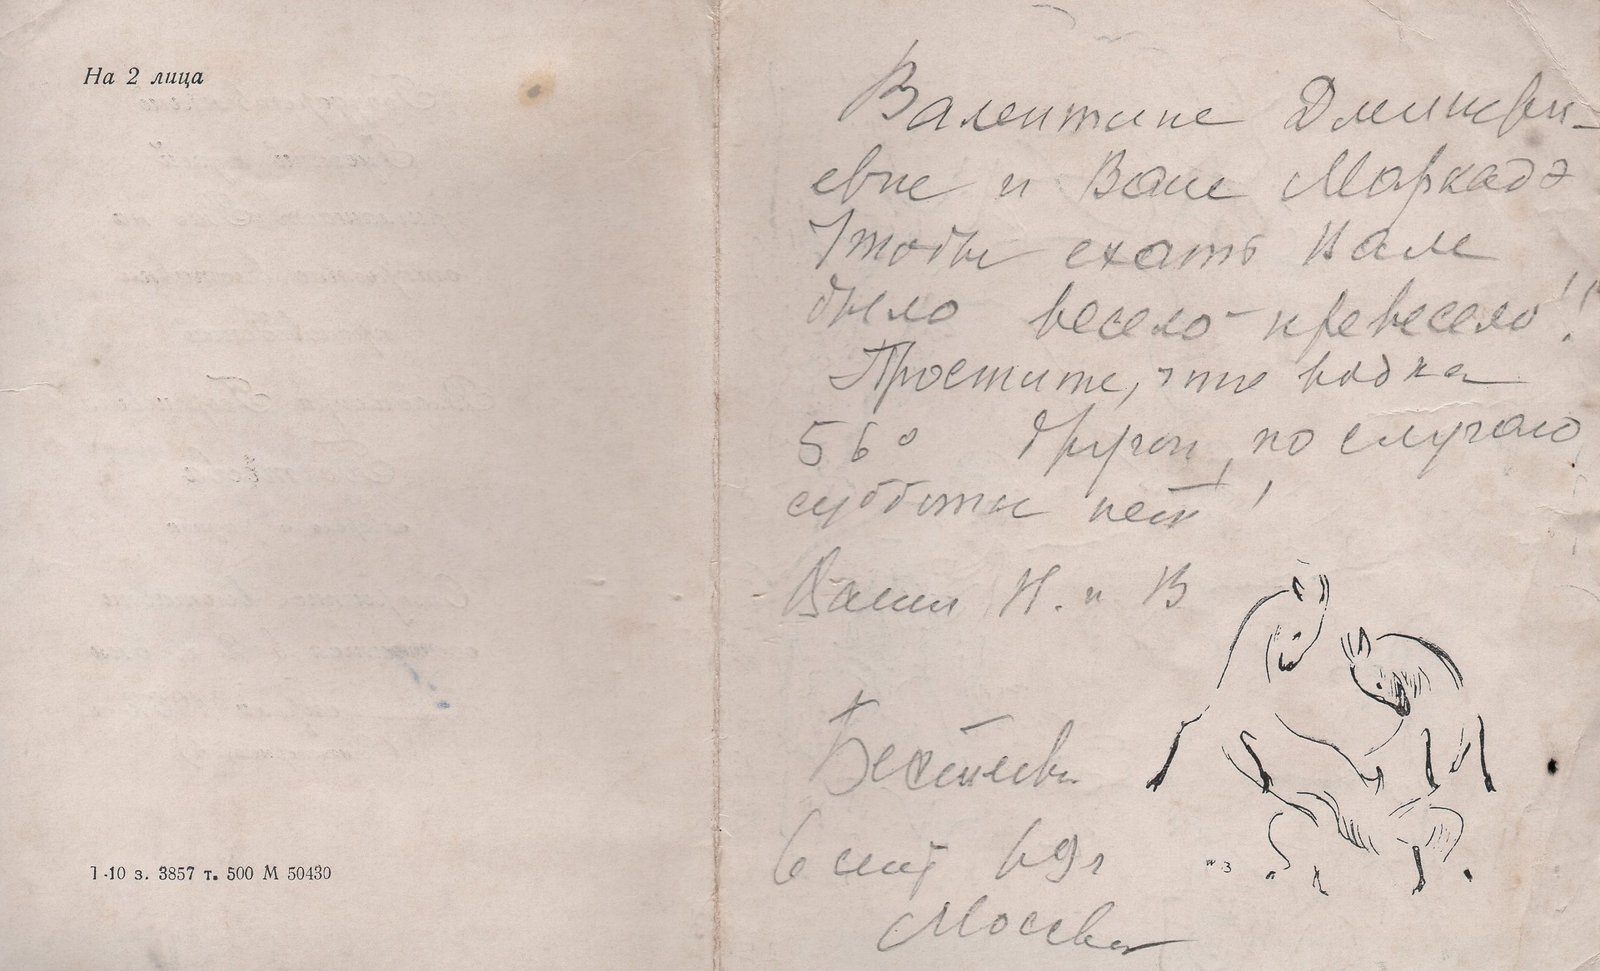 На 2 лица
1-10 з. 3857 т. 500 М 50430
Валентине Дмитри-
евне и Ване Маркадэ
Чтобы ехать Вам
было весело-превесело!!
Простите, что водка
56° другой, по случаю
субботы нет!
Ваши Н. и В
6 сент 69г
Москва